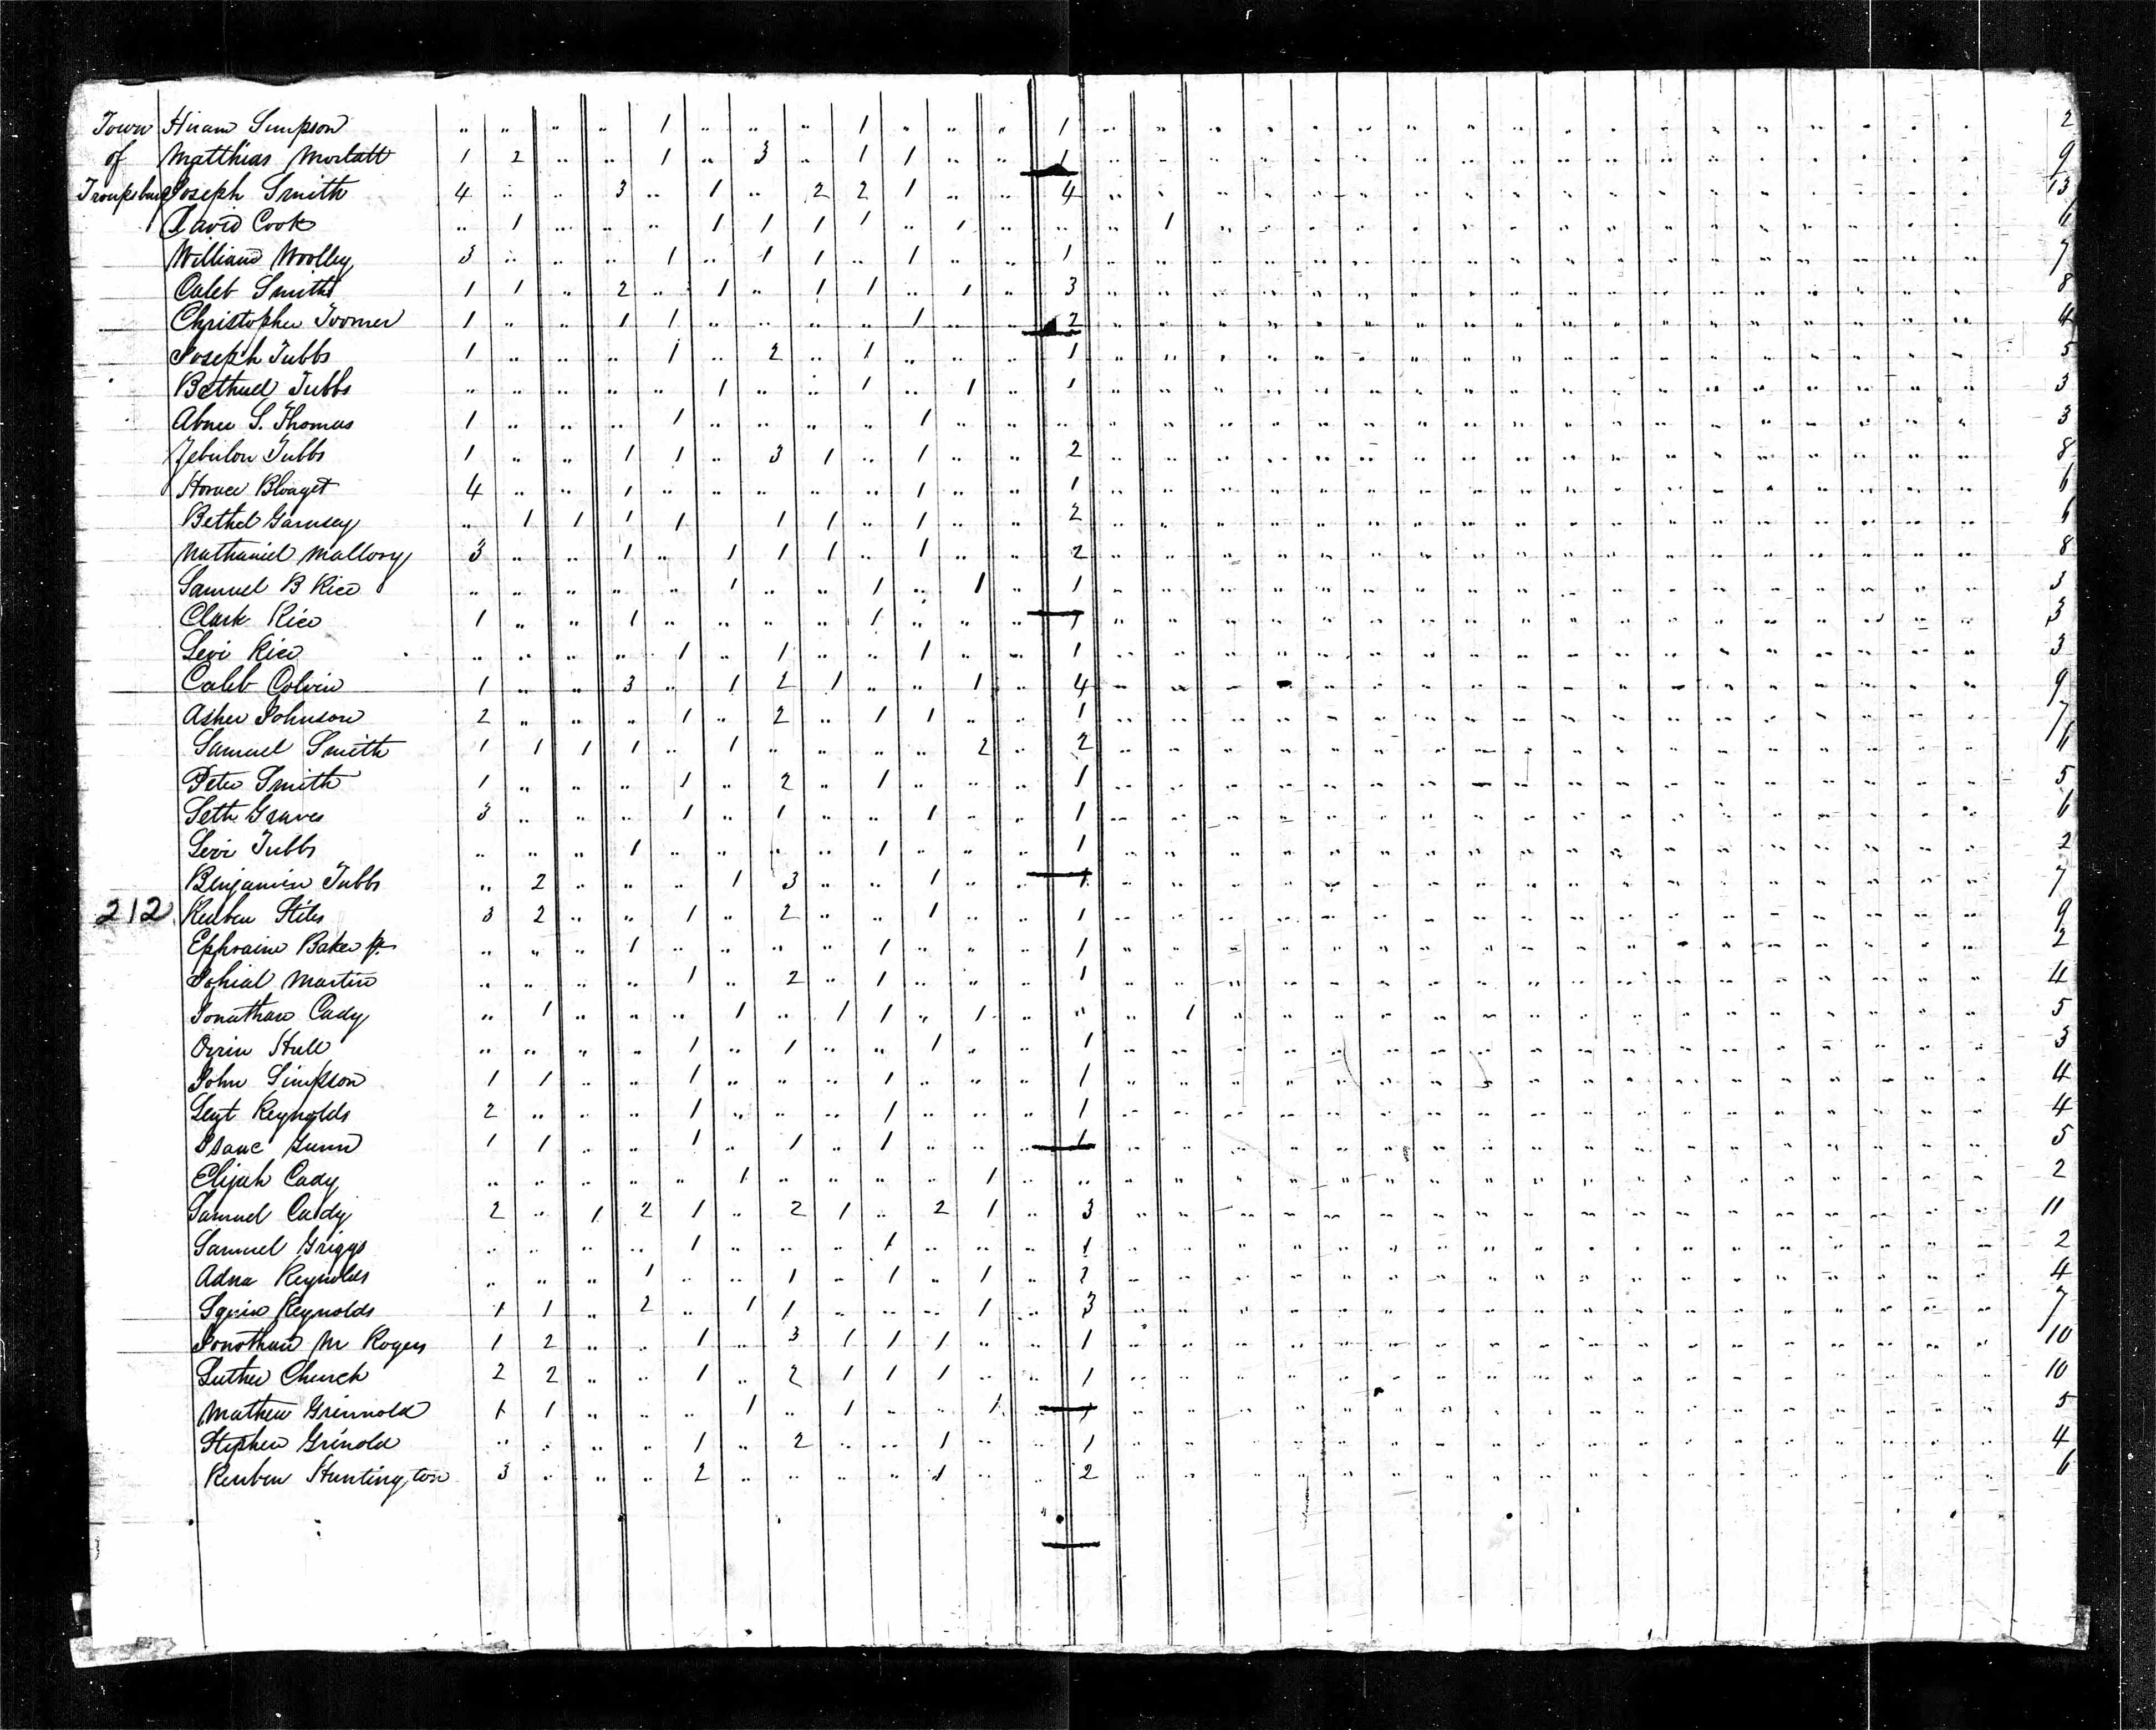 Town Hiram Simpson " " " " 1 " " " 1 " " " 1 " " " " " " " " " " " " " " " " " " " 2
of Matthias 1 2 " " 1 " 3 " 1 1 " " 1 " " " " " " " " " " " " " " " " " " " 9
Troupsburg Joseph Smith 4 " " 3 " 1 " 2 2 1 " " 4 " " " " " " " " " " " " " " " " " " " 13
David Cook " 1 " " " 1 1 1 1 " 1 " " " 1 " " " " " " " " " " " " " " " " " 6
William Woolley 3 " " " 1 " 1 1 " 1 " " 1 " " " " " " " " " " " " " " " " " " " 7
Caleb Smith 1 1 " 2 " 1 " 1 1 " 1 " 3 " " " " " " " " " " " " " " " " " " " 8
Christopher Toomer 1 " " 1 1 " " " " 1 " " 2 " " " " " " " " " " " " " " " " " " " 4
Joseph Tubbs 1 " " " 1 " 2 " 1 " " " 1 " " " " " " " " " " " " " " " " " " " 5
Bethuel Tubbs " " " " " 1 " " 1 " 1 " 1 " " " " " " " " " " " " " " " " " " " 3
Abner S. Thomas 1 " " " 1 " " " " 1 " " " " " " " " " " " " " " " " " " " " " " 3
Zebulon Tubbs 1 " " 1 1 " 3 1 " 1 " " 2 " " " " " " " " " " " " " " " " " " " 8
Horace 4 " " 1 " " " " " 1 " " 1 " " " " " " " " " " " " " " " " " " " 6
Bethel Garnsey " 1 1 1 1 " 1 1 " 1 " " 2 " " " " " " " " " " " " " " " " " " " 6
Nathaniel Mallory 3 " " 1 " 1 1 1 " 1 " " 2 " " " " " " " " " " " " " " " " " " " 8
Samuel B Rice " " " " " 1 " " 1 " 1 " 1 " " " " " " " " " " " " " " " " " " " 3
Clark Rice 1 " " 1 " " " " 1 " " " 1 " " " " " " " " " " " " " " " " " " " 3
Levi Rice " " " " 1 " 1 " " 1 " " 1 " " " " " " " " " " " " " " " " " " " 3
Caleb Colvin 1 " " 3 " 1 2 1 " " 1 " 4 " " " " " " " " " " " " " " " " " " " 9
Asher Johnson 2 " " " 1 " 2 " 1 1 " " 1 " " " " " " " " " " " " " " " " " " " 7
Samuel Smith 1 1 1 1 " 1 " " " " 2 " 2 " " " " " " " " " " " " " " " " " " "
Peter Smith 1 " " " 1 " 2 " 1 " " " 1 " " " " " " " " " " " " " " " " " " " 5
Seth Graves 3 " " " 1 " 1 " " 1 " " 1 " " " " " " " " " " " " " " " " " " " 6
Levi Tubbs " " " 1 " " " " 1 " " " 1 " " " " " " " " " " " " " " " " " " " 2
Benjamin Tubbs " 2 " " " 1 3 " " 1 " " 1 " " " " " " " " " " " " " " " " " " " 7
212 Reuben Stiles 3 2 " " 1 " 2 " " 1 " " 1 " " " " " " " " " " " " " " " " " " " 9
Ephraim Baker Jr. " " " 1 " " " " 1 " " " 1 " " " " " " " " " " " " " " " " " " " 2
Martin " " " " 1 " 2 " 1 " " " 1 " " " " " " " " " " " " " " " " " " " 4
Jonathan Cady " 1 " " " 1 " 1 1 " 1 " " " 1 " " " " " " " " " " " " " " " " " 5
Orrin Hull " " " " 1 " 1 " " 1 " " 1 " " " " " " " " " " " " " " " " " " " 3
John Simpson 1 1 " " 1 " " " 1 " " " 1 " " " " " " " " " " " " " " " " " " " 4
Reynolds 2 " " " 1 " " " 1 " " " 1 " " " " " " " " " " " " " " " " " " " 4
Isaac Gunn 1 1 " " 1 " 1 " 1 " " " 1 " " " " " " " " " " " " " " " " " " " 5
Elijah Cady " " " " " 1 " " " " 1 " " " " " " " " " " " " " " " " " " " " " 2
Samuel Cady 2 " 1 2 1 " 2 1 " 2 1 " 3 " " " " " " " " " " " " " " " " " " " 11
Samuel Griggs " " " " 1 " " " 1 " " " 1 " " " " " " " " " " " " " " " " " " " 2
Adna Reynolds " " " 1 " " 1 " 1 " 1 " 2 " " " " " " " " " " " " " " " " " " " 4
Squire Reynolds 1 1 " 2 " 1 1 " " " 1 " 3 " " " " " " " " " " " " " " " " " " " 7
Jonothan M Rogers 1 2 " " 1 " 3 1 1 1 " " 1 " " " " " " " " " " " " " " " " " " " 10
Luther Church 2 2 " " 1 " 2 1 1 1 " " 1 " " " " " " " " " " " " " " " " " " " 10
Mathew Grinnold 1 1 " " " 1 " 1 " " 1 " 1 " " " " " " " " " " " " " " " " " " " 5
Stephen Grinold " " " " 1 " 2 " " 1 " " 1 " " " " " " " " " " " " " " " " " " " 4
Reuben Huntington 3 " " " 2 " " " " 1 " " 2 " " " " " " " " " " " " " " " " " " " 6